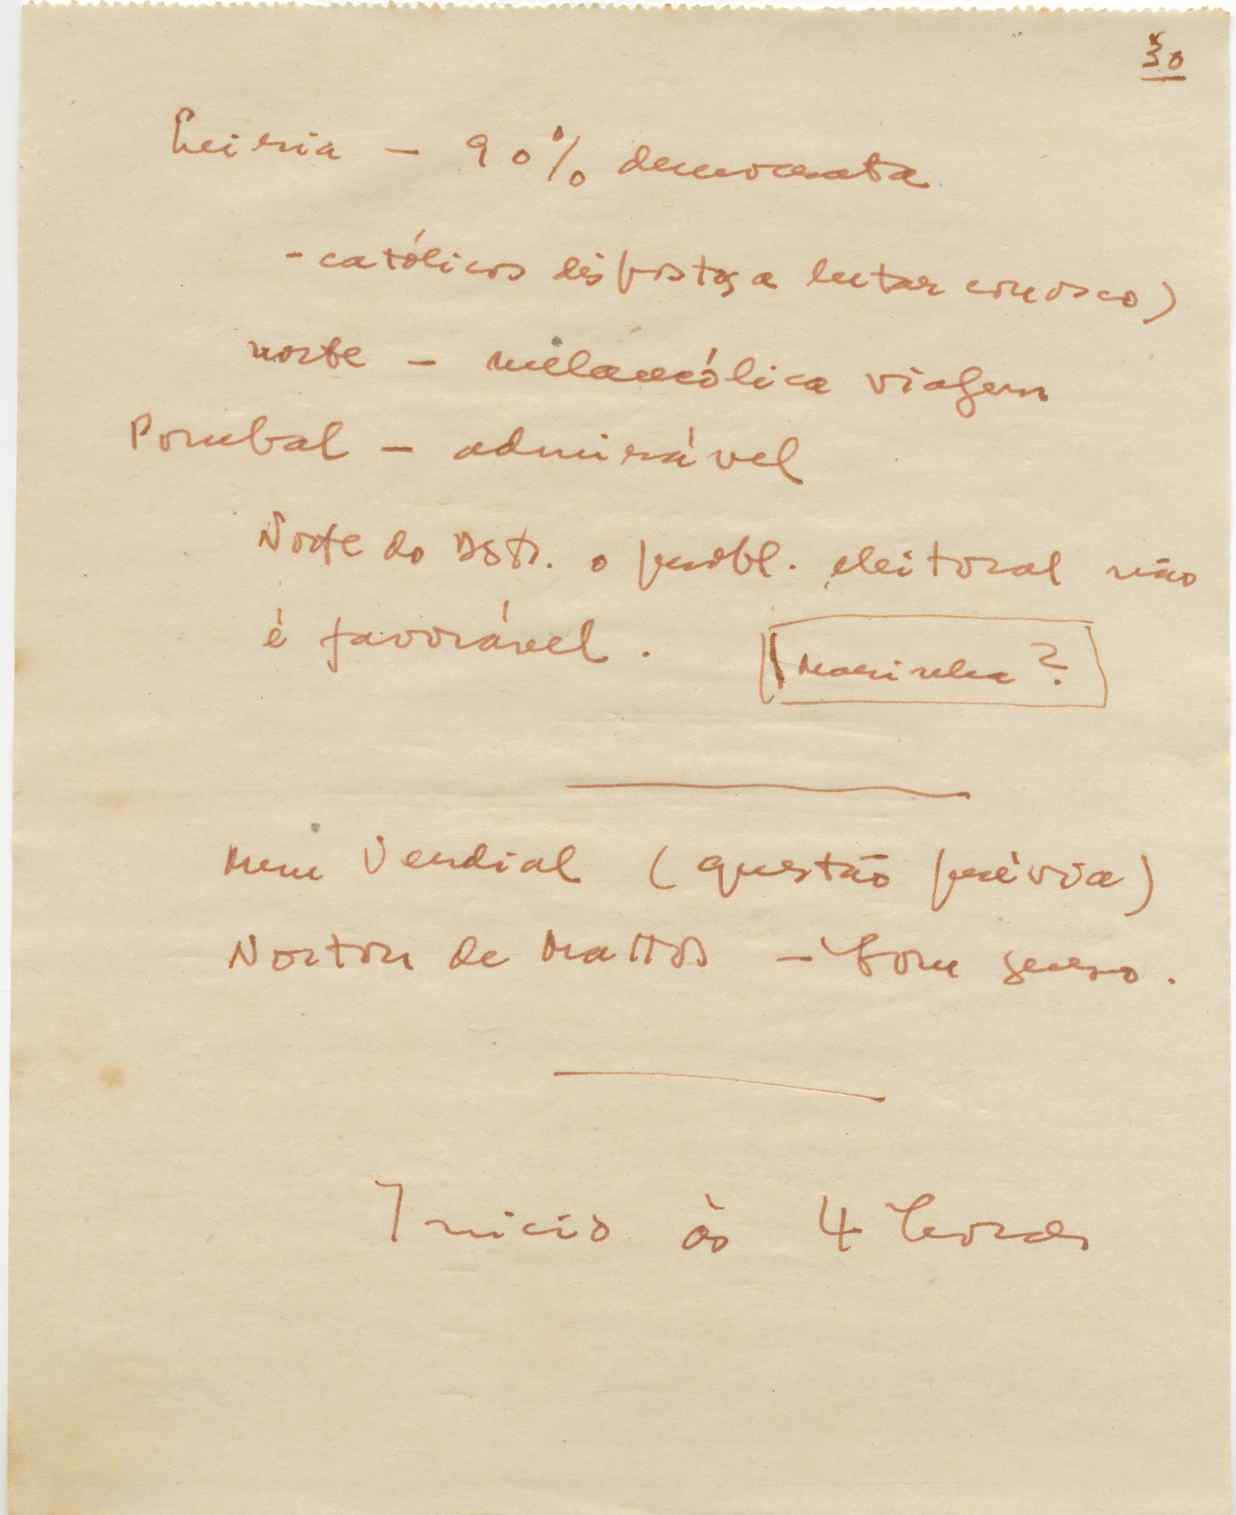 30
Leiria - 90% democrata
- católicos dispostos a lutar conosco)
norte - melancólica viagem
Pombal - admirável
Norte do Dstr. o probl. eleitoral não
é favorável.
Marinha ?
Mem Verdial (questão prévia)
Norton de Mattos - bom senso.
Inicio às 4 horas